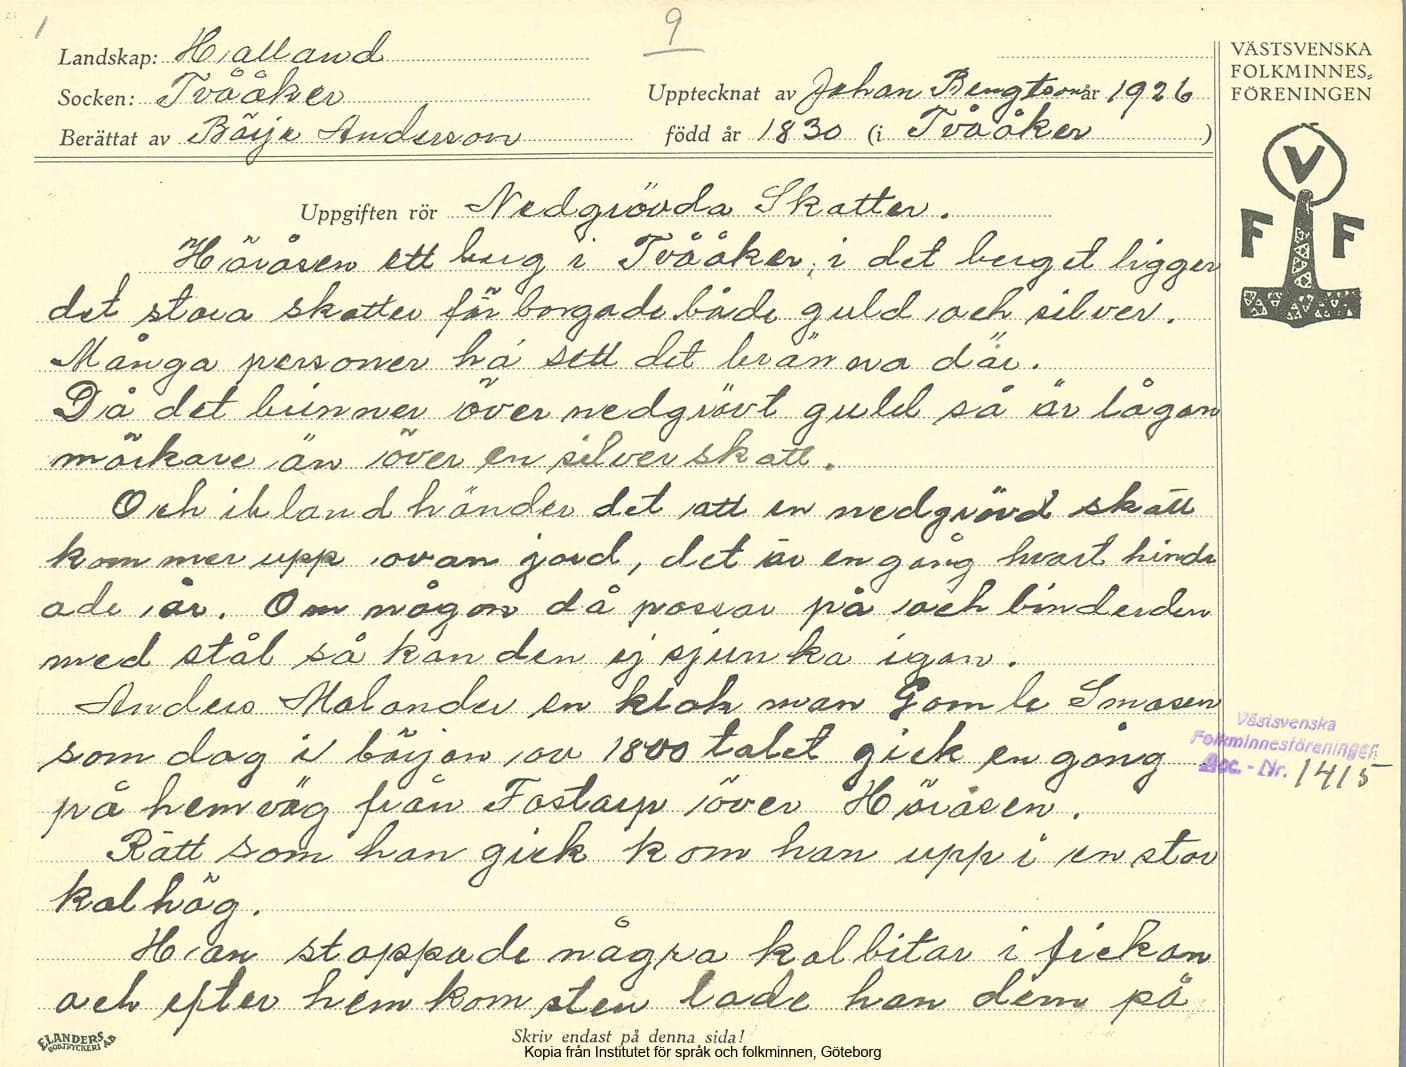 1
9
Landskap: Halland
Socken: Tvååker
Upptecknat av Johan Bengtson år 1926
Berättat av Börje Anderson
född år 1830 (i Tvååker )
VÄSTSVENSKA
FOLKMINNES-
FÖRENINGEN
V
F F
Uppgiften rör Nedgrövda Skatter.
Höråsen ett berg i Tvååker, i det berget ligger
det stora skatter förborgade både guld och silver.
Många personer há sett det bränna där.
Då det brinner över nedgrövt guld så är lågan
mörkare än över en silverskatt.
Och ibland händer det att en nedgrövd skatt
kommer upp ovan jord, det är en gång hvart hundr
ade år. Om någon då passar på och binder den
med stål så kan den ej sjunka igan.
Anders Malander en kloh man Gamle Smasen
som dog i böijan av 1800 talet gick en gång
på hemväg från Fastarp över Höråsen.
Rätt som han gick kom han upp i en stor
kolhög.
Han stoppade några kolbitar i fickan
och efter hemkomsten lade han dem på
Västsvenska
Folkminnesföreningen
Acc. - Nr. 1415
ELANDERS
BOKTRYCKERI AB
Skriv endast på denna sida!
Kopia från Institutet för språk och folkminnen, Göteborg